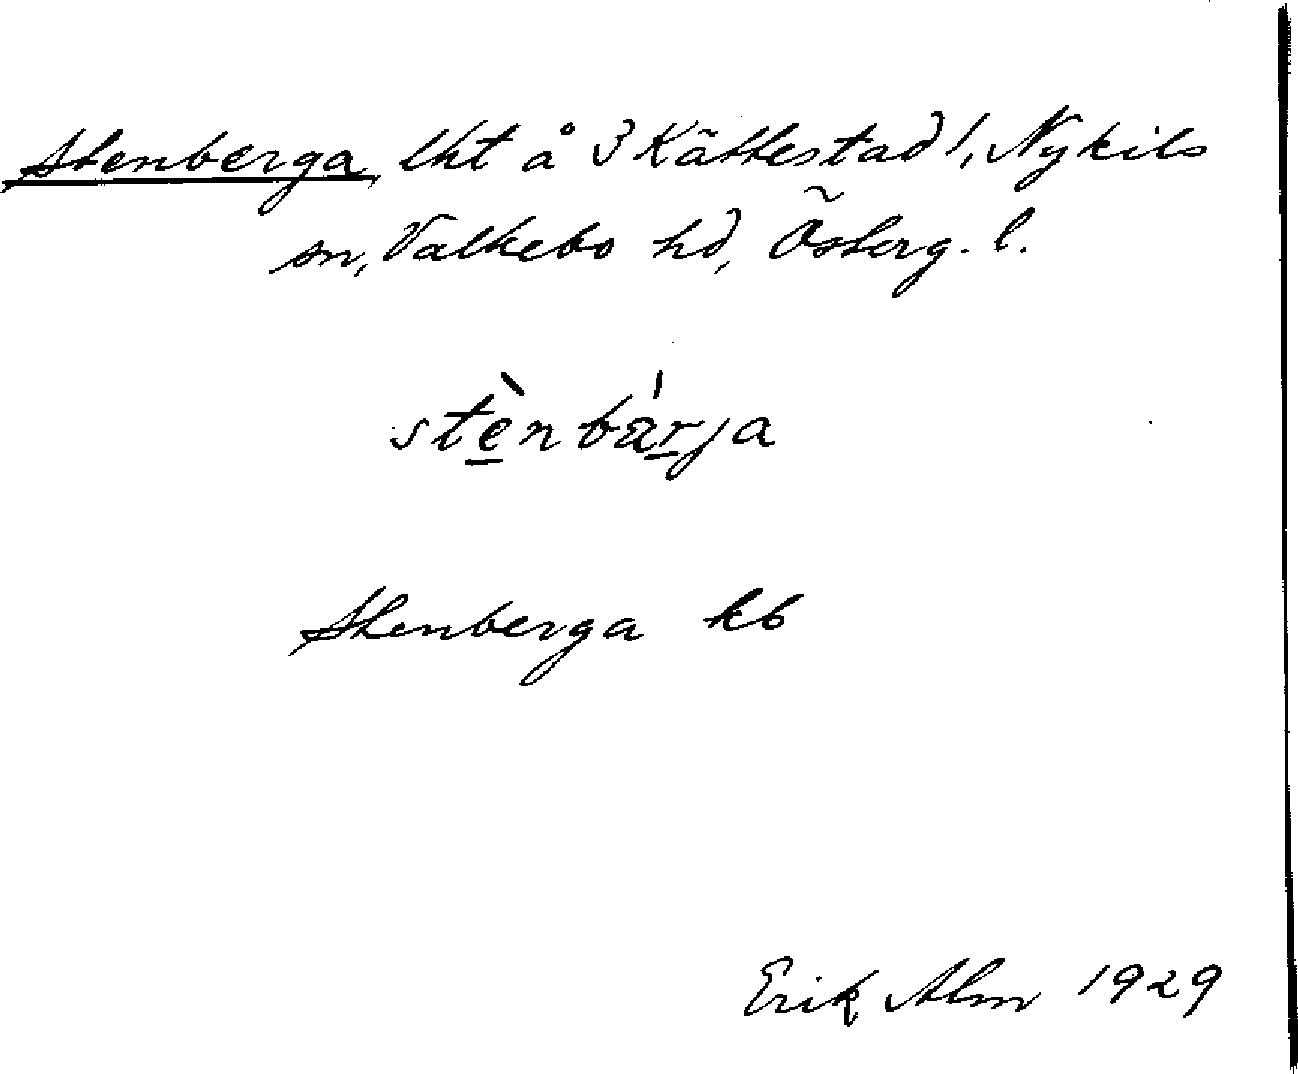 Stenberga, lht å 3 Kättestad 1, Nykils
sn, Valkebo hd, Österg. l.
stènbárja
Stenberga kb
Erik Alm 1929